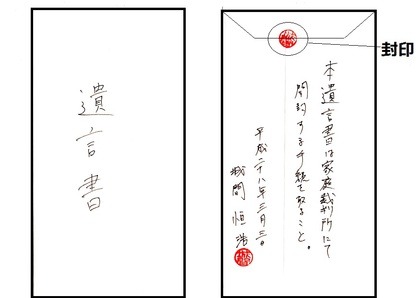 遺言書
封印
本遺言書は家庭裁判所にて
開封する手続を取ること。
平成二十八年三月三日
間 恒浩